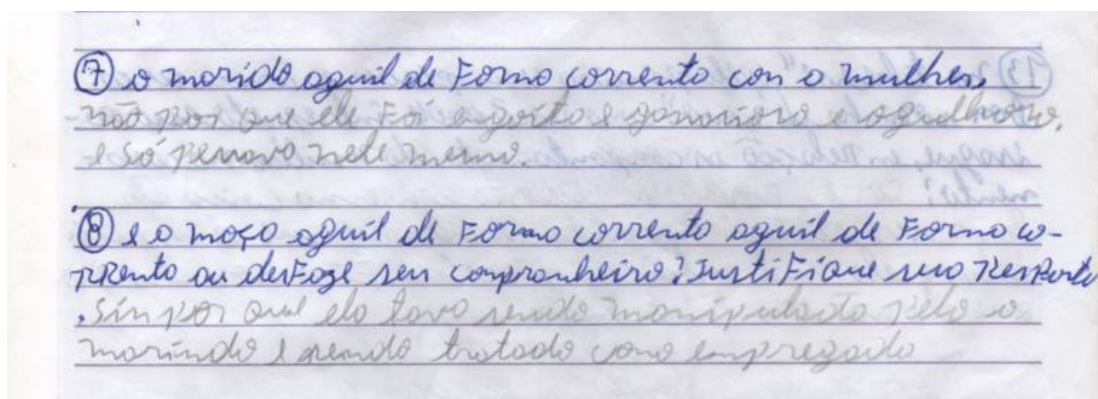 ⑦ o marido aguil de Forma corrento con o mulher,
não por que ele Foi egoíto e gononioro e ogulhoro,
e só penovo nele memo.
⑧ e o moço aguil de Forma corrento aguil de Forma co-
rrento ou desFoze seu conpranheiro? JustiFique suo Resposta
. Sin por que elo tavo sendo monipulado pelo o
morindo e sendo trotodo como empregodo